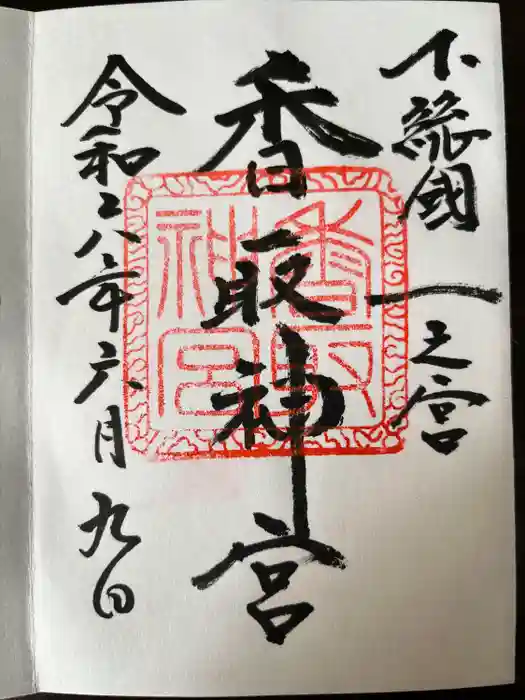 下総國一之宮
香取神宮
令和六年六月九日
香取神宮